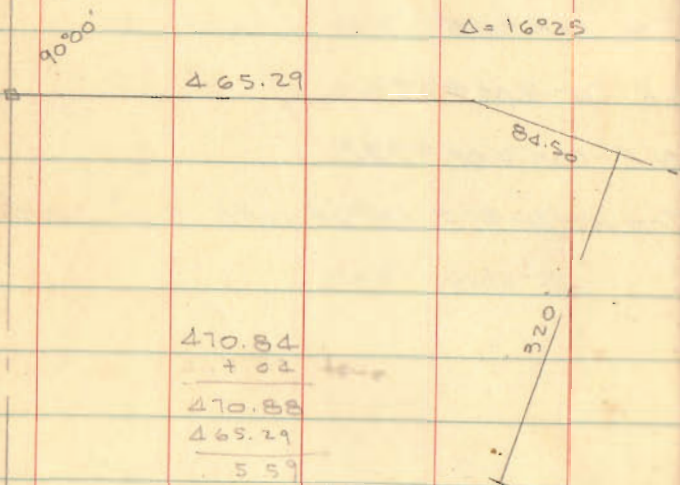 90°00'
Δ = 16°25
465.29
84.50
320'
470.84
+ 04
470.88
465.29
5 59